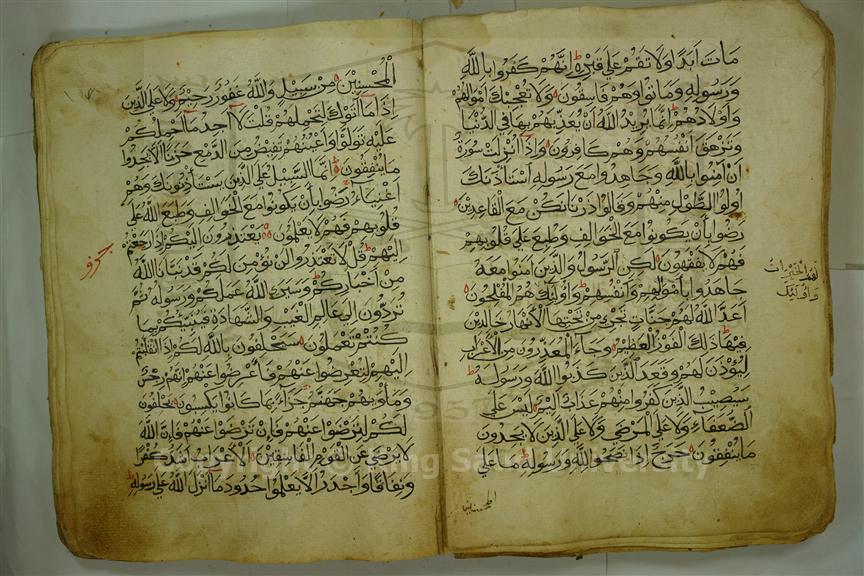 مَاتَ أَبَدًا وَلَا تَقُمْ عَلَى قَبْرِهِ إِنَّهُمْ كَفَرُوا بِاللَّهِ
وَرَسُولِهِ وَمَاتُوا وَهُمْ فَاسِقُونَ وَلَا تُعْجِبْكَ أَمْوَالُهُمْ
وَأَوْلَادُهُمْ إِنَّمَا يُرِيدُ اللَّهُ أَنْ يُعَذِّبَهُمْ بِهَا فِي الدُّنْيَا
وَتَزْهَقَ أَنْفُسُهُمْ وَهُمْ كَافِرُونَ وَإِذَا أُنْزِلَتْ سُورَةٌ
أَنْ آمِنُوا بِاللَّهِ وَجَاهِدُوا مَعَ رَسُولِهِ اسْتَأْذَنَكَ
أُولُوا الطَّوْلِ مِنْهُمْ وَقَالُوا ذَرْنَا نَكُنْ مَعَ الْقَاعِدِينَ
رَضُوا بِأَنْ يَكُونُوا مَعَ الْخَوَالِفِ وَطُبِعَ عَلَى قُلُوبِهِمْ
فَهُمْ لَا يَفْقَهُونَ لَكِنِ الرَّسُولُ وَالَّذِينَ آمَنُوا مَعَهُ
جَاهَدُوا بِأَمْوَالِهِمْ وَأَنْفُسِهِمْ وَأُولَئِكَ هُمُ الْمُفْلِحُونَ
أَعَدَّ اللَّهُ لَهُمْ جَنَّاتٍ تَجْرِي مِنْ تَحْتِهَا الْأَنْهَارُ خَالِدِينَ
فِيهَا ذَلِكَ الْفَوْزُ الْعَظِيمُ وَجَاءَ الْمُعَذِّرُونَ مِنَ الْأَعْرَابِ
لِيُؤْذَنَ لَهُمْ وَقَعَدَ الَّذِينَ كَذَبُوا اللَّهَ وَرَسُولَهُ
سَيُصِيبُ الَّذِينَ كَفَرُوا مِنْهُمْ عَذَابٌ أَلِيمٌ لَيْسَ عَلَى
الضُّعَفَاءِ وَلَا عَلَى الْمَرْضَى وَلَا عَلَى الَّذِينَ لَا يَجِدُونَ
مَا يُنْفِقُونَ حَرَجٌ إِذَا نَصَحُوا لِلَّهِ وَرَسُولِهِ مَا عَلَى
المحسنين
لهم الخيرات
وأولئك
الْمُحْسِنِينَ مِنْ سَبِيلٍ وَاللَّهُ غَفُورٌ رَحِيمٌ وَلَا عَلَى الَّذِينَ
إِذَا مَا أَتَوْكَ لِتَحْمِلَهُمْ قُلْتَ لَا أَجِدُ مَا أَحْمِلُكُمْ
عَلَيْهِ تَوَلَّوْا وَأَعْيُنُهُمْ تَفِيضُ مِنَ الدَّمْعِ حَزَنًا أَلَّا يَجِدُوا
مَا يُنْفِقُونَ إِنَّمَا السَّبِيلُ عَلَى الَّذِينَ يَسْتَأْذِنُونَكَ وَهُمْ
أَغْنِيَاءُ رَضُوا بِأَنْ يَكُونُوا مَعَ الْخَوَالِفِ وَطَبَعَ اللَّهُ عَلَى
قُلُوبِهِمْ فَهُمْ لَا يَعْلَمُونَ يَعْتَذِرُونَ إِلَيْكُمْ إِذَا رَجَعْتُمْ
إِلَيْهِمْ قُلْ لَا تَعْتَذِرُوا لَنْ نُؤْمِنَ لَكُمْ قَدْ نَبَّأَنَا اللَّهُ
مِنْ أَخْبَارِكُمْ وَسَيَرَى اللَّهُ عَمَلَكُمْ وَرَسُولُهُ ثُمَّ
تُرَدُّونَ إِلَى عَالِمِ الْغَيْبِ وَالشَّهَادَةِ فَيُنَبِّئُكُمْ بِمَا
كُنْتُمْ تَعْمَلُونَ سَيَحْلِفُونَ بِاللَّهِ لَكُمْ إِذَا انْقَلَبْتُمْ
إِلَيْهِمْ لِتُعْرِضُوا عَنْهُمْ فَأَعْرِضُوا عَنْهُمْ إِنَّهُمْ رِجْسٌ
وَمَأْوَاهُمْ جَهَنَّمُ جَزَاءً بِمَا كَانُوا يَكْسِبُونَ يَحْلِفُونَ
لَكُمْ لِتَرْضَوْا عَنْهُمْ فَإِنْ تَرْضَوْا عَنْهُمْ فَإِنَّ اللَّهَ
لَا يَرْضَى عَنِ الْقَوْمِ الْفَاسِقِينَ الْأَعْرَابُ أَشَدُّ كُفْرًا
وَنِفَاقًا وَأَجْدَرُ أَلَّا يَعْلَمُوا حُدُودَ مَا أَنْزَلَ اللَّهُ عَلَى رَسُولِهِ
Copyright © King Saud University